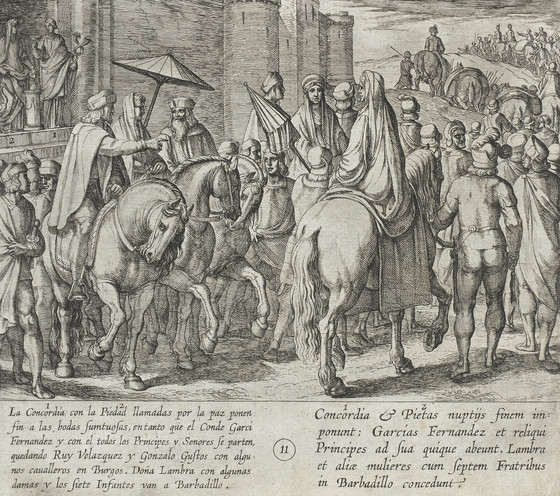 2 1
La Concordia con la Piedad llamadas por la paz ponen
fin a las bodas suntuosas, en tanto que el Conde Garci
Fernandez y con el todos los Principes y Senores se parten,
quedando Ruy Velazquez y Gonzalo Gustos con algu-
nos caualleros en Burgos. Doña Lambra con algunas
damas y los siete Infantes van a Barbadillo.
11
Concordia & Pietas nuptijs finem im-
ponunt: Garcias Fernandez et reliqui
Principes ad sua quique abeunt. Lambra
et aliæ mulieres cum septem Fratribus
in Barbadillo concedunt.